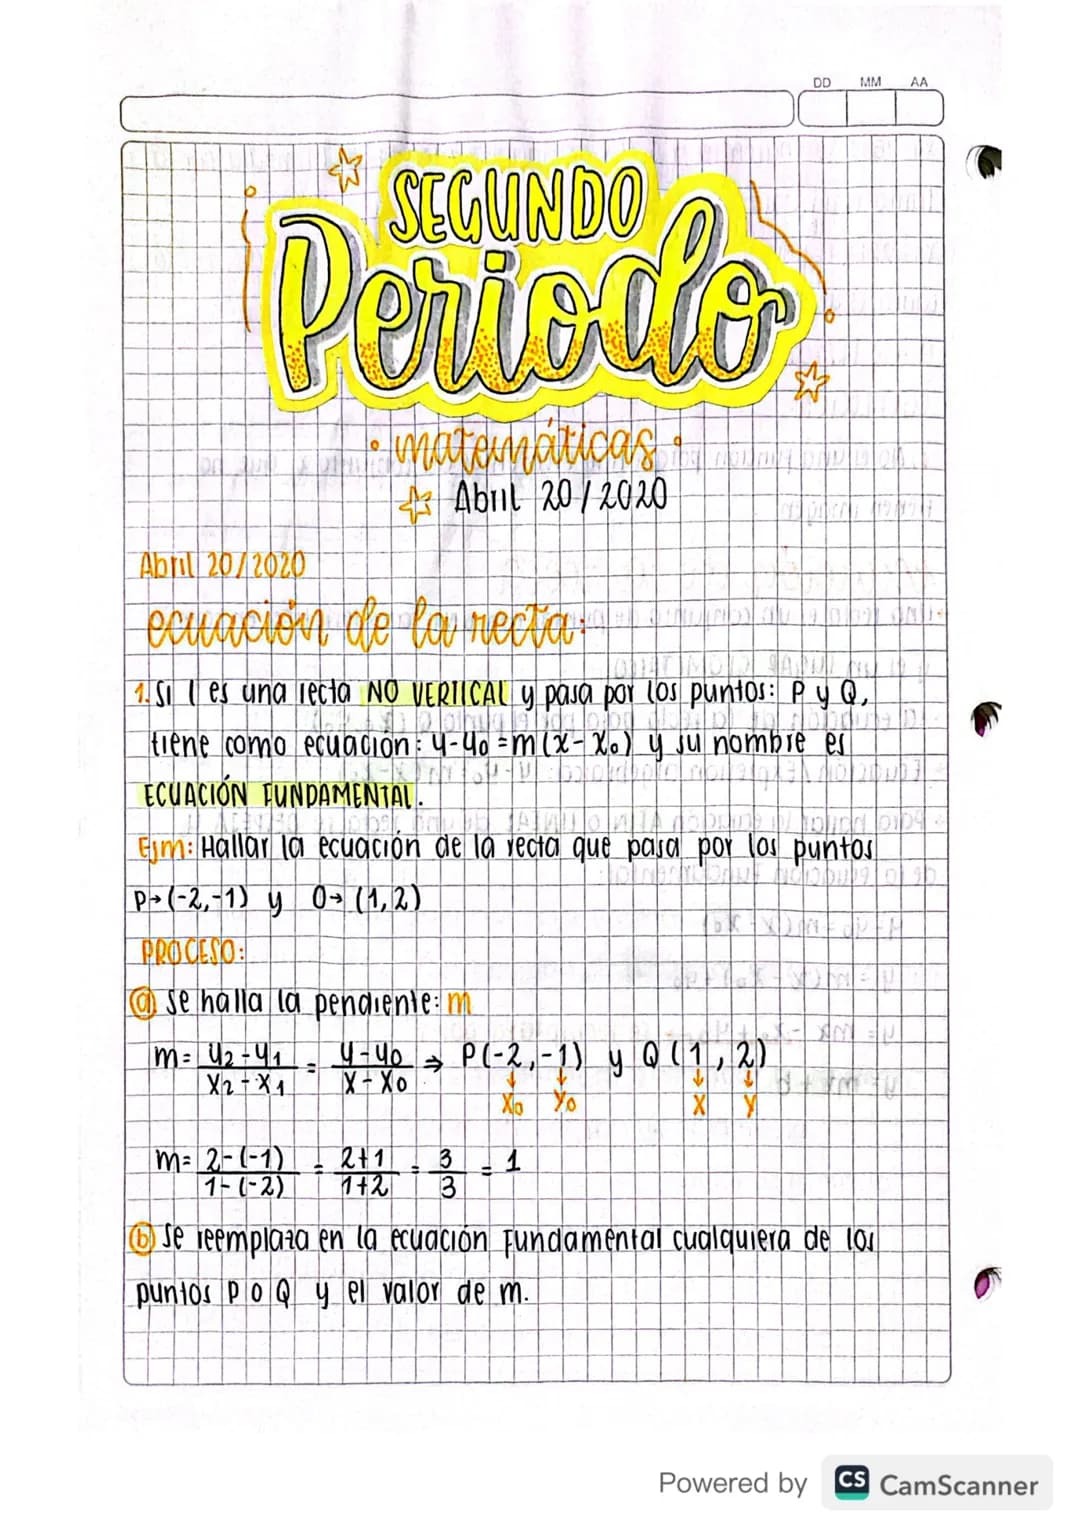 DD MM AA
SEGUNDO
Periodo
• matemáticas •
Abril 20/2020
Abril 20/2020
ecuación de la recta:
1. Si l es una recta NO VERTICAL y pasa por los puntos: P y Q,
tiene como ecuación: y-y₀ = m(x-x₀) y su nombre es
ECUACIÓN FUNDAMENTAL.
Ejm: Hallar la ecuación de la recta que pasa por los puntos
P→(-2,-1) y O→(1,2)
PROCESO:
ⓐ Se halla la pendiente: m
m= y₂-y₁ / x₂-x₁ = y-y₀ / x-x₀ ⇒ P(-2,-1) y Q(1,2)
x₀ y₀ x y
m= 2-(-1) / 1-(-2) = 2+1 / 1+2 = 3 / 3 = 1
ⓑ Se reemplaza en la ecuación Fundamental cualquiera de los
puntos P o Q y el valor de m.
Powered by CS CamScanner